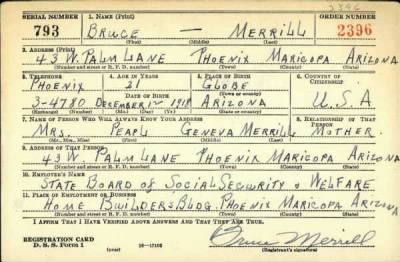 2396
SERIAL NUMBER 1. NAME (Print) ORDER NUMBER
793 BRUCE — MERRILL 2396
(First) (Middle) (Last)
2. ADDRESS (Print)
43 W. PALM LANE PHOENIX MARICOPA ARIZONA
(Number and street or R. F. D. number) (Town) (County) (State)
3. TELEPHONE 4. AGE IN YEARS 5. PLACE OF BIRTH 6. COUNTRY OF CITIZENSHIP
PHOENIX 21 GLOBE
DATE OF BIRTH (Town or county)
3-4780 DECEMBER 12 1918 ARIZONA U.S.A
7. NAME OF PERSON WHO WILL ALWAYS KNOW YOUR ADDRESS 8. RELATIONSHIP OF THAT PERSON
MRS. PEARL GENEVA MERRILL MOTHER
(Mr., Mrs., Miss) (First) (Middle) (Last)
9. ADDRESS OF THAT PERSON
43 W. PALM LANE PHOENIX MARICOPA ARIZONA
(Number and street or R. F. D. number) (Town) (County) (State)
10. EMPLOYER'S NAME
STATE BOARD OF SOCIAL SECURITY & WELFARE
11. PLACE OF EMPLOYMENT OR BUSINESS
HOME BUILDERS BLDG. PHOENIX MARICOPA ARIZONA
(Number and street or R. F. D. number) (Town) (County) (State)
I AFFIRM THAT I HAVE VERIFIED ABOVE ANSWERS AND THAT THEY ARE TRUE.
REGISTRATION CARD
D. S. S. Form 1 (over) Bruce Merrill
(Registrant's signature)